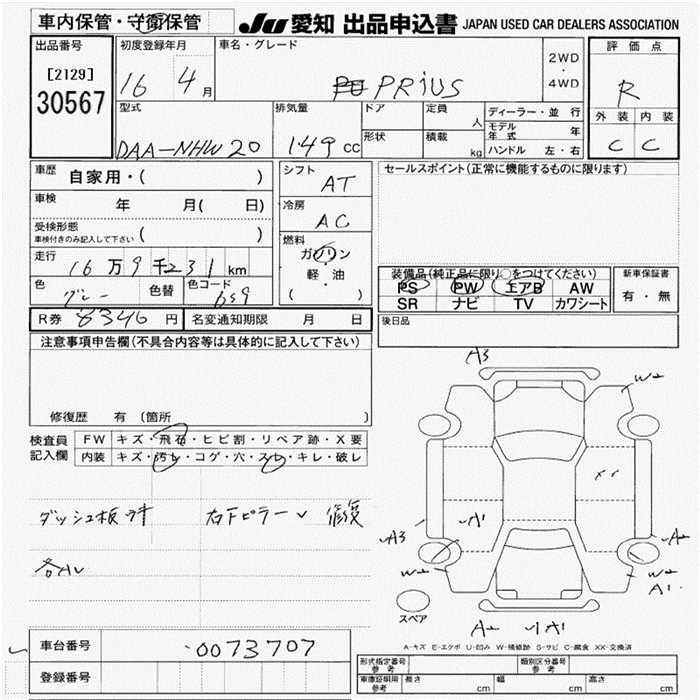 車内保管・守衛保管
JU 愛知 出品申込書 JAPAN USED CAR DEALERS ASSOCIATION
出品番号
[2129]
30567
初度登録年月
16 4月
車名・グレード
PRiUS
2WD
・
4WD
評価点
R
外装 内装
C C
型式
DAA-NHW20
排気量
149cc
ドア
形状
定員
人
積載
kg
ディーラー・並行
モデル年式 年
ハンドル 左・右
車歴
自家用・( )
車検
年 月( 日)
受検形態
車検付きのみ記入して下さい ( )
走行
16万9千231km
色
グレー
色替
色コード
1G9
シフト
AT
冷房
AC
燃料
ガソリン
・
軽・油
( )
セールスポイント(正常に機能するものに限ります)
装備品(純正品に限り○をつけてください)
PS PW エアB AW
SR ナビ TV カワシート
新車保証書
有・無
R券 8340円
名変通知期限 月 日
後日品
注意事項申告欄(不具合内容等は具体的に記入して下さい)
修復歴 有 〔箇所 〕
検査員記入欄
FW キズ・飛石・ヒビ割・リペア跡・X要
内装 キズ・汚レ・コゲ・穴・スレ・キレ・破レ
ダッシュ板
右下ピラー 修復
各AU
A3
W2
XX
A1
A3
A2
W2
W2
A1
A2
A1
スペア
A-キズ E-エクボ U-凹み W-補修跡 S-サビ C-腐食 XX-交換済
車台番号
0073707
登録番号
形式指定番号
参考
類別区分番号
参考
車庫証明用
参考
長さ cm 幅 cm 高さ cm